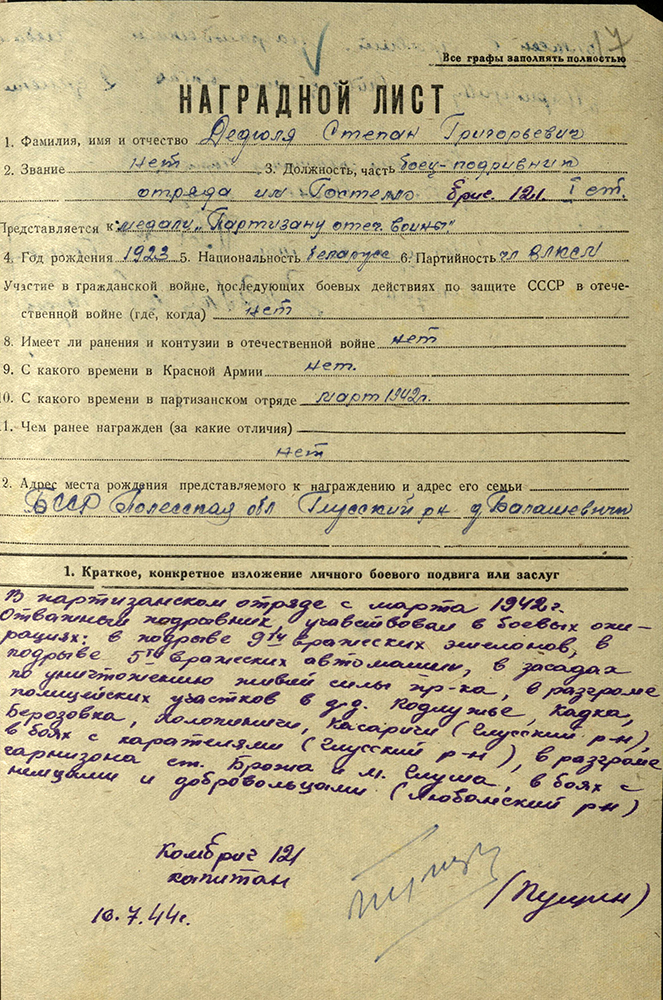 Все графы заполнять полностью
НАГРАДНОЙ ЛИСТ
1. Фамилия, имя и отчество Дедюля Степан Григорьевич
2. Звание нет 3. Должность, часть боец-подривник
отряда им Гостелло бриг. 121. I ст.
Представляется к медали „Партизану отеч. войны"
4. Год рождения 1923 5. Национальность беларусс 6. Партийность чл ВЛКСМ
Участие в гражданской войне, последующих боевых действиях по защите СССР в отече-
ственной войне (где, когда) нет
8. Имеет ли ранения и контузии в отечественной войне нет
9. С какого времени в Красной Армии нет.
10. С какого времени в партизанском отряде март 1942г.
1. Чем ранее награжден (за какие отличия)
нет
2. Адрес места рождения представляемого к награждению и адрес его семьи
БССР Полесская обл Глусский рн д. Балашевичи
1. Краткое, конкретное изложение личного боевого подвига или заслуг
В партизанском отряде с марта 1942г.
Отважный подрывник, учавствовал в боевых опе-
рациях: в подрыве 9ти вражеских эшелонов, в
подрыве 5ти вражеских автомашин, в засадах
по уничтожению живой силы пр-ка, в разгроме
полицейских участков в д.д. Подлужье, Кадка,
Берозовка, Холопеничи, Касаричи (Глусский р-н),
в боях с карателями (Глусский р-н), в разгроме
гарнизона ст. Брожа и м. Глуша, в боях с
немцами и добровольцами (Любанский р-н)
Комбриг 121
капитан
(Пущин)
10.7.44г.